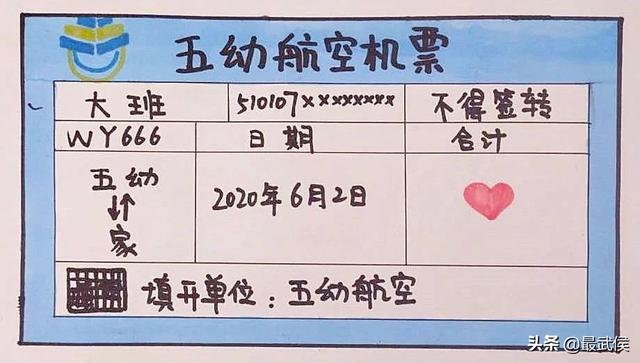 五幼航空机票
大班 510107xxxxxxxx 不得签转
WY666 日期 合计
五幼
↓↑
家
2020年6月2日
填开单位：五幼航空
头条 @最武侯